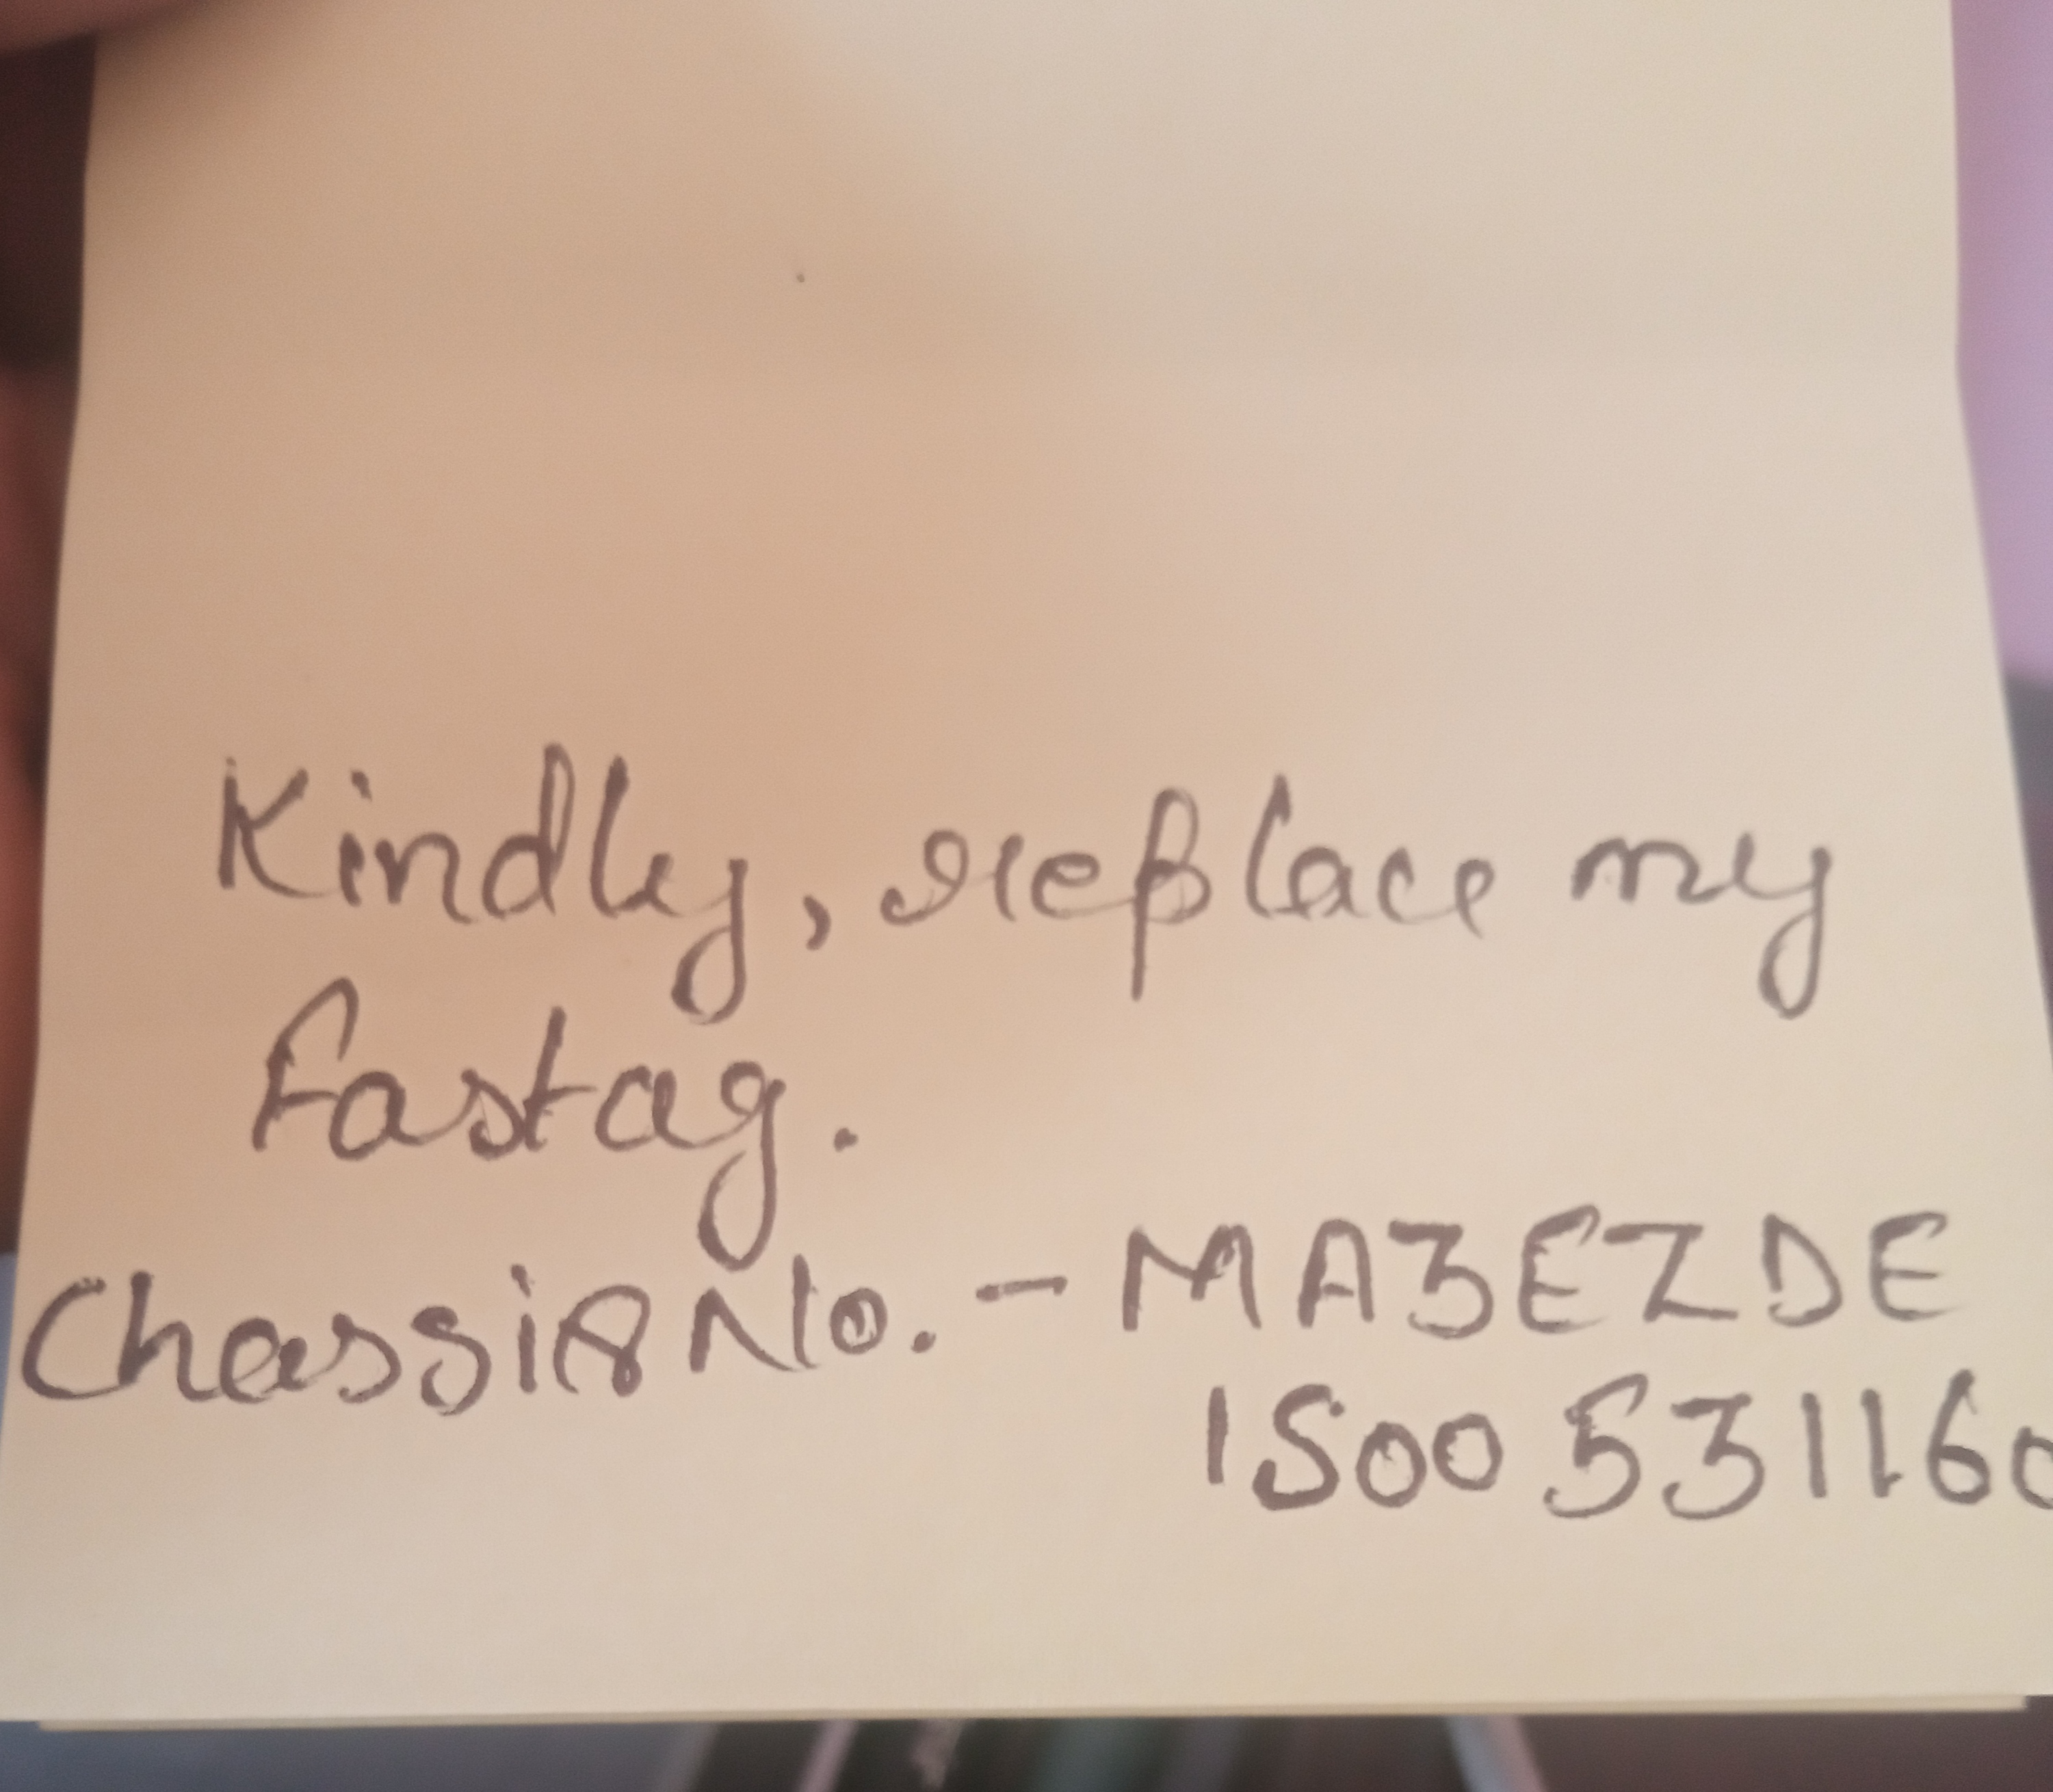 Kindly, replace my
fastag.
Chassis No. - MA3EZDE
1S00531160